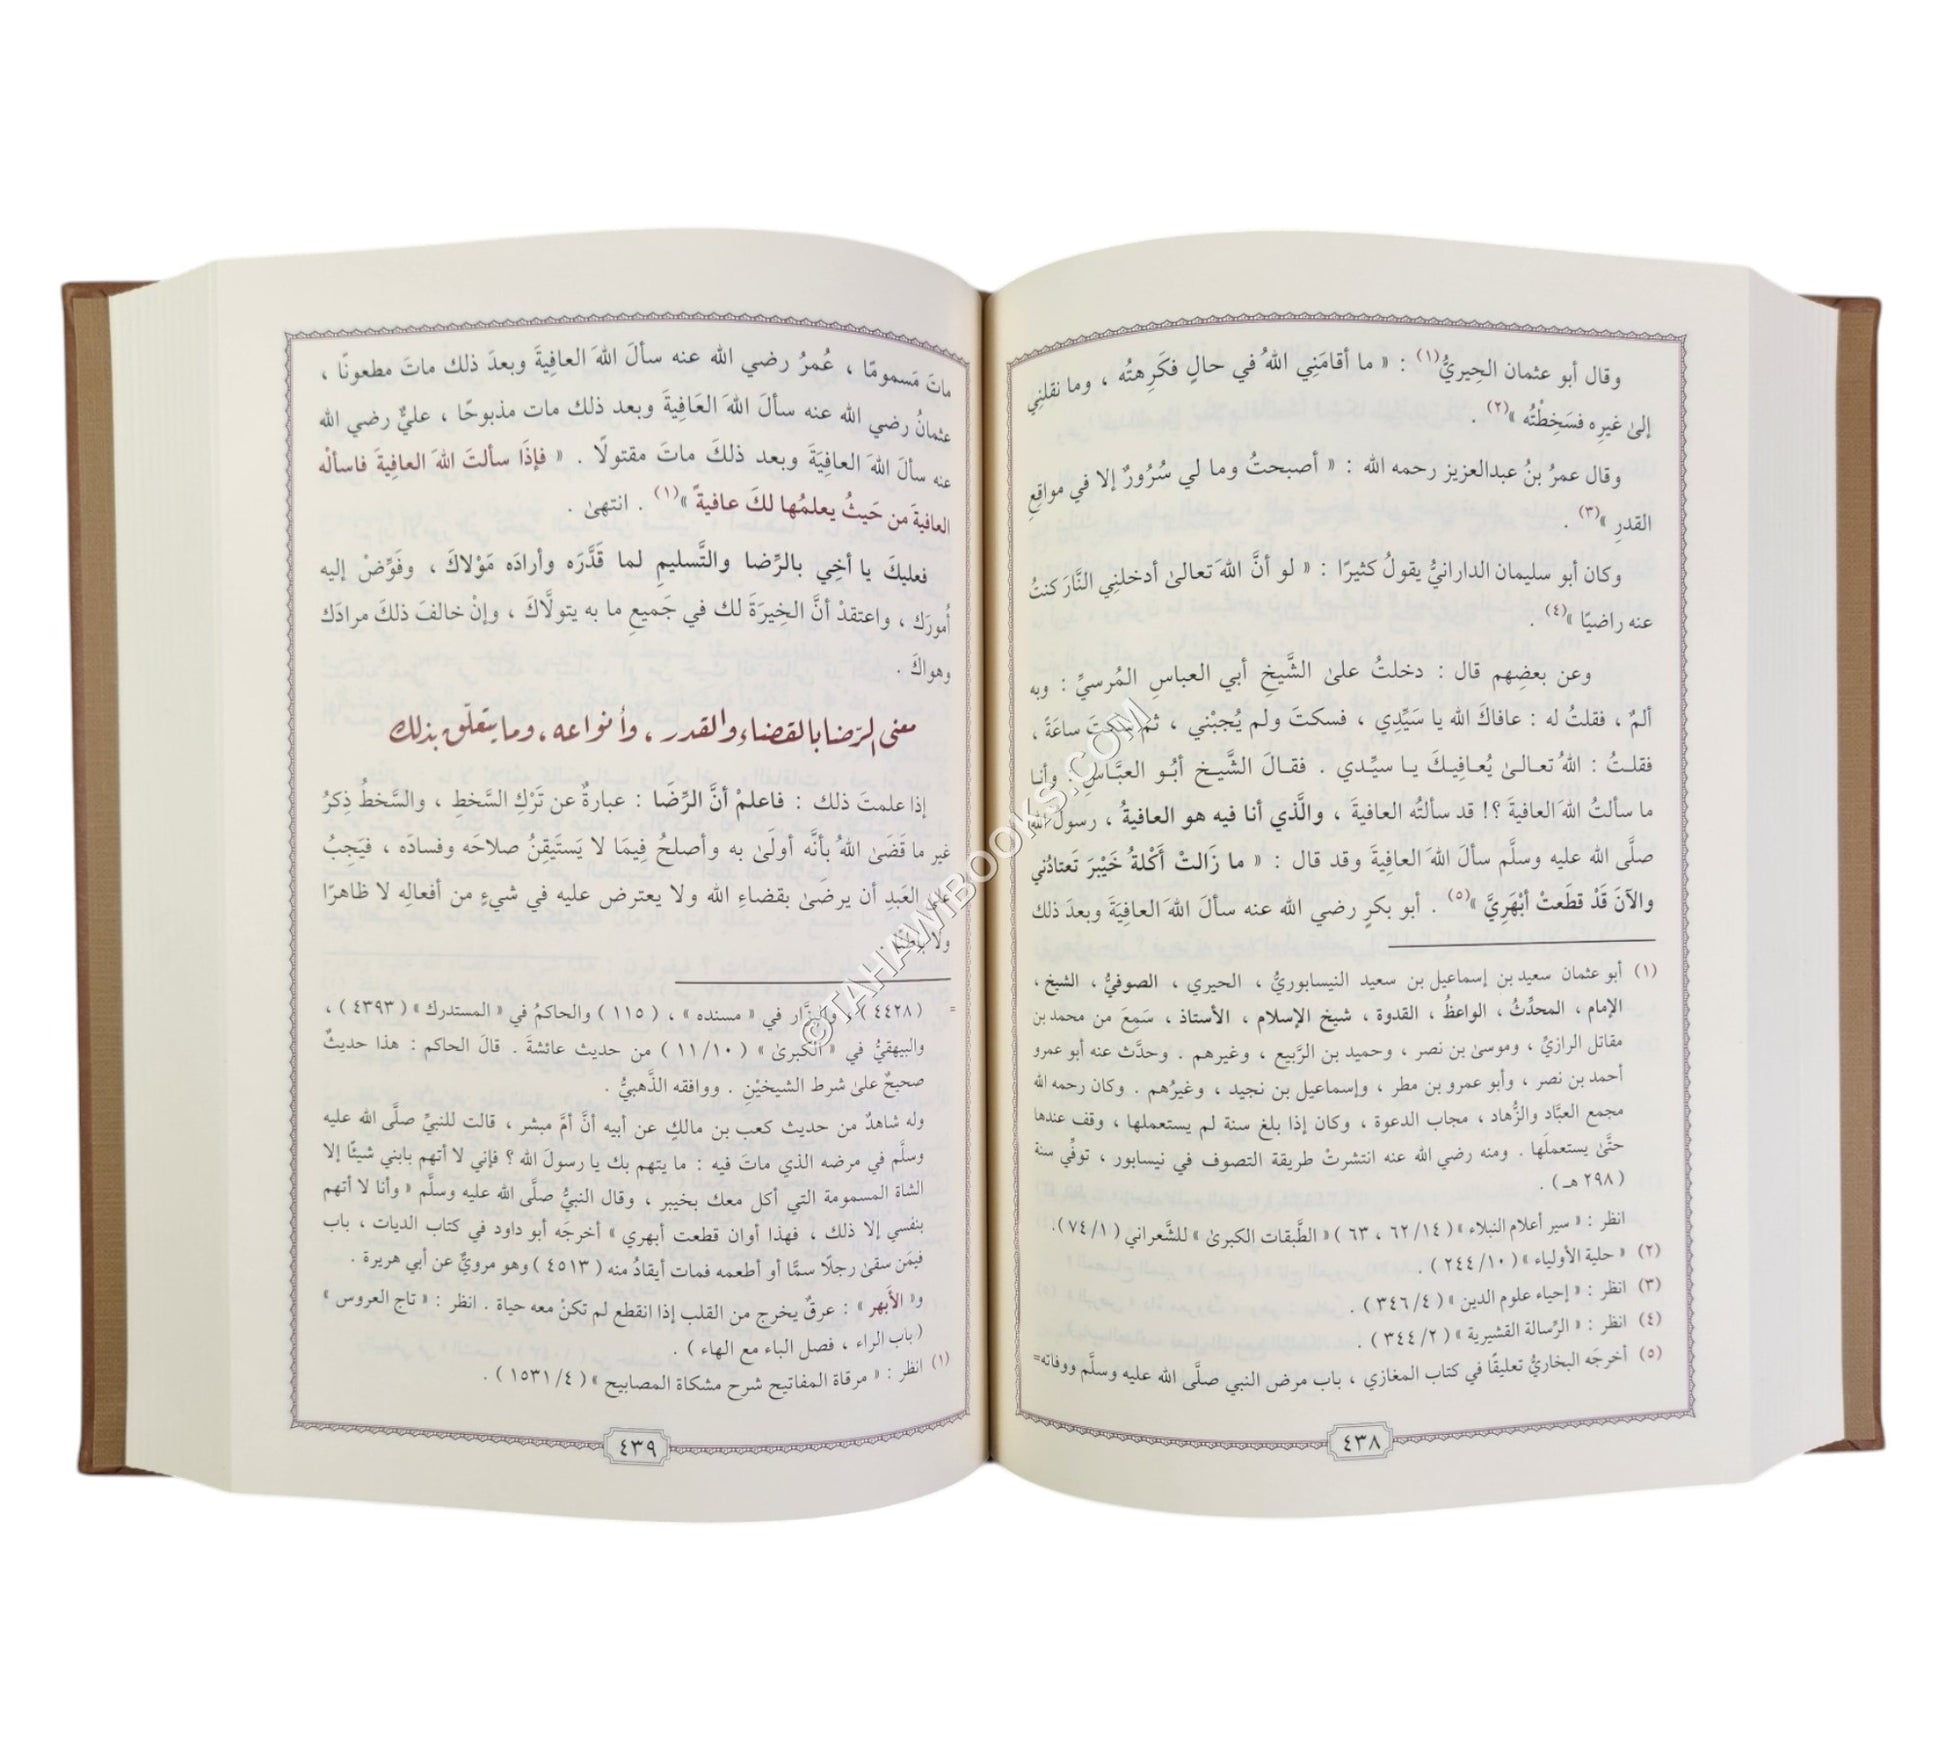 وقال أبو عثمان الحِيريُّ(١) : « ما أقامَنِي اللهُ في حالٍ فكَرِهتُه ، وما نقلنِي
إلىٰ غيرِه فسَخِطْتُه »(٢) .
وقال عمرُ بنُ عبدالعزيز رحمه الله : « أصبحتُ وما لي سُرُورٌ إلا في مواقِعِ
القدرِ »(٣) .
وكان أبو سليمان الدارانيُّ يقولُ كثيرًا : « لو أنَّ اللهَ تعالىٰ أدخلنِي النَّارَ كنتُ
عنه راضيًا »(٤) .
وعن بعضِهم قال : دخلتُ علىٰ الشَّيخِ أبي العباسِ المُرسيِّ : وبه
ألمٌ ، فقلتُ له : عافاكَ الله يا سَيِّدِي ، فسكتَ ولم يُجبْني ، ثم سكتَ ساعَةً ،
فقلتُ : اللهُ تعالىٰ يُعافِيكَ يا سيِّدي . فقالَ الشَّيخ أبُو العبَّاسِ : وأنا
ما سألتُ اللهَ العافيةَ ؟! قد سألتُه العافيةَ ، والَّذي أنا فيه هو العافيةُ ، رسولُ الله
صلَّى الله عليه وسلَّم سألَ اللهَ العافِيَةَ وقد قال : « ما زَالتْ أَكْلةُ خَيْبرَ تَعتادُني
والآنَ قَدْ قطَعتْ أبْهَرِيَّ »(٥) . أبو بكرٍ رضي الله عنه سألَ اللهَ العافِيَةَ وبعدَ ذلك
(١) أبو عثمان سعيد بن إسماعيل بن سعيد النيسابوريُّ ، الحيري ، الصوفيُّ ، الشيخ ،
الإمام ، المحدِّثُ ، الواعظُ ، القدوة ، شيخ الإسلام ، الأستاذ ، سَمِعَ من محمد بن
مقاتل الرازيِّ ، وموسىٰ بن نصر ، وحميد بن الرَّبيع ، وغيرهم . وحدَّث عنه أبو عمرو
أحمد بن نصر ، وأبو عمرو بن مطر ، وإسماعيل بن نجيد ، وغيرُهم . وكان رحمه الله
مجمع العبَّاد والزُّهاد ، مجاب الدعوة ، وكان إذا بلغ سنة لم يستعملها ، وقف عندها
حتَّىٰ يستعملَها . ومنه رضي الله عنه انتشرتْ طريقة التصوف في نيسابور ، توفِّي سنة
( ٢٩٨ هـ ) .
انظر : « سير أعلام النبلاء » ( ١٤/ ٦٢ ، ٦٣ ) « الطَّبقات الكبرىٰ » للشَّعراني ( ١/ ٧٤ ).
(٢) « حلية الأولياء » ( ١٠/ ٢٤٤ ) .
(٣) انظر : « إحياء علوم الدين » ( ٤/ ٣٤٦ ) .
(٤) انظر : « الرِّسالة القشيرية » ( ٢/ ٣٤٤ ) .
(٥) أخرجَه البخاريُّ تعليقًا في كتاب المغازي ، باب مرض النبي صلَّى الله عليه وسلَّم ووفاته=
٤٣٨
ماتَ مَسمومًا ، عُمرُ رضي الله عنه سألَ اللهَ العافِيةَ وبعدَ ذلك ماتَ مطعونًا ،
عثمانُ رضي الله عنه سألَ اللهَ العَافِيةَ وبعد ذلك مات مذبوحًا ، عليٌّ رضي الله
عنه سألَ اللهَ العافِيَةَ وبعد ذلكَ ماتَ مقتولًا . « فإذَا سألتَ اللهَ العافِيةَ فاسألْه
العافيةَ من حَيثُ يعلمُها لكَ عافيةً »(١) . انتهىٰ .
فعليكَ يا أخِي بالرِّضا والتَّسليمِ لما قَدَّرَه وأرادَه مَوْلاكَ ، وفَوِّضْ إليه
أُمورَك ، واعتقدْ أنَّ الخِيرَةَ لك في جَميعِ ما به يتولَّاكَ ، وإنْ خالفَ ذلكَ مرادَك
وهواكَ .
معنى الرّضا بالقضاء والقدر ، وأنواعه ، وما يتعلّق بذلك
إذا علمتَ ذلك : فاعلمْ أنَّ الرِّضَا : عبارةٌ عن تَرْكِ السَّخطِ ، والسَّخطُ ذِكرُ
غير ما قَضَىٰ اللهُ بأنَّه أولَىٰ به وأصلحُ فِيمَا لا يَستَيقِنُ صلاحَه وفسادَه ، فيَجِبُ
علىٰ العَبدِ أن يرضىٰ بقضاءِ الله ولا يعترض عليه في شيءٍ من أفعالِه لا ظاهرًا
ولا باطنًا .
= ( ٤٤٢٨ ) ، والبزَّار في « مسنده » ، ( ١١٥ ) والحاكمُ في « المستدرك » ( ٤٣٩٣ ) ،
والبيهقيُّ في « الكبرىٰ » ( ١٠/ ١١ ) من حديث عائشةَ . قالَ الحاكم : هذا حديثٌ
صحيحٌ علىٰ شرط الشيخيْنِ . ووافقه الذَّهبيُّ .
وله شاهدٌ من حديث كعب بن مالكٍ عن أبيه أنَّ أمَّ مبشر ، قالت للنبيِّ صلَّى الله عليه
وسلَّم في مرضه الذي ماتَ فيه : ما يتهم بك يا رسولَ الله ؟ فإني لا أتهم بابني شيئًا إلا
الشاة المسمومة التي أكل معك بخيبر ، وقال النبيُّ صلَّى الله عليه وسلَّم « وأنا لا أتهم
بنفسي إلا ذلك ، فهذا أوان قطعت أبهري » أخرجَه أبو داود في كتاب الديات ، باب
فيمَن سقىٰ رجلًا سمًّا أو أطعمه فمات أيقادُ منه ( ٤٥١٣ ) وهو مرويٌّ عن أبي هريرة .
و« الأَبهر » : عرقٌ يخرج من القلب إذا انقطع لم تكنْ معه حياة . انظر : « تاج العروس »
( باب الراء ، فصل الباء مع الهاء ) .
(١) انظر : « مرقاة المفاتيح شرح مشكاة المصابيح » ( ٤/ ١٥٣١ ) .
٤٣٩
© TAHAWIBOOKS.COM